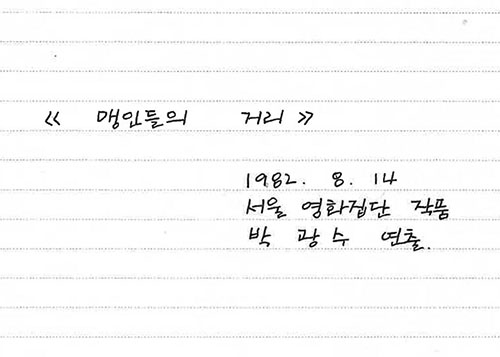 《 맹인들의 거리 》
1982. 8. 14
서울 영화집단 작품
박 광 수 연출.